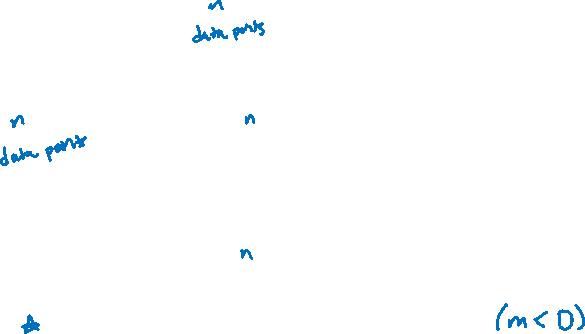 n
data points
n
n
data points
n
(m < D)